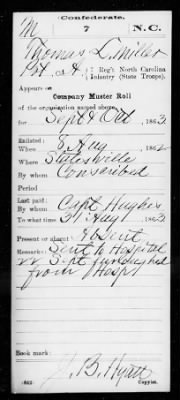 Confederate.
M 7 N.C.
Thomas L. Miller
Pvt, Co. 7 Reg't North Carolina
Infantry (State Troops).
Appears on
Company Muster Roll
of the organization named above
for Sept & Oct, 1863
Enlisted:
When 8 Aug, 1862
Where Statesville
By whom Conscribed
Period
Last paid:
By whom Capt Hughes
To what time 31 Aug, 1863
Present or absent Absent
Remarks: Sent to Hospital
in Sept furloughed
from Hospl
Book mark:
J. B. Hyatt
(642) Copyist.